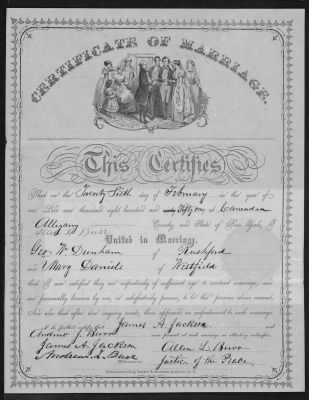 CERTIFICATE OF MARRIAGE.
This Certifies
That on the Twenty Sixth day of February in the year of
our Lord one thousand eight hundred and Fifty one at Caneadea
Allegany County, and State of New York, I
United in Marriage,
Geo. W. Dunham of Rushford
and Mary Daniels of Westfield
that I am satisfied they are respectively of sufficient age to contract marriage; are
not personally known by me, or satisfactorily proven, to be the persons above named;
that also that after due inquiry made, there appeared no impediment to such marriage.
James A. Jackson
Andrew J. Burr present at such marriage as attesting witnesses
James A. Jackson Allen L. Burr
Andrew J. Burr Justice of the Peace